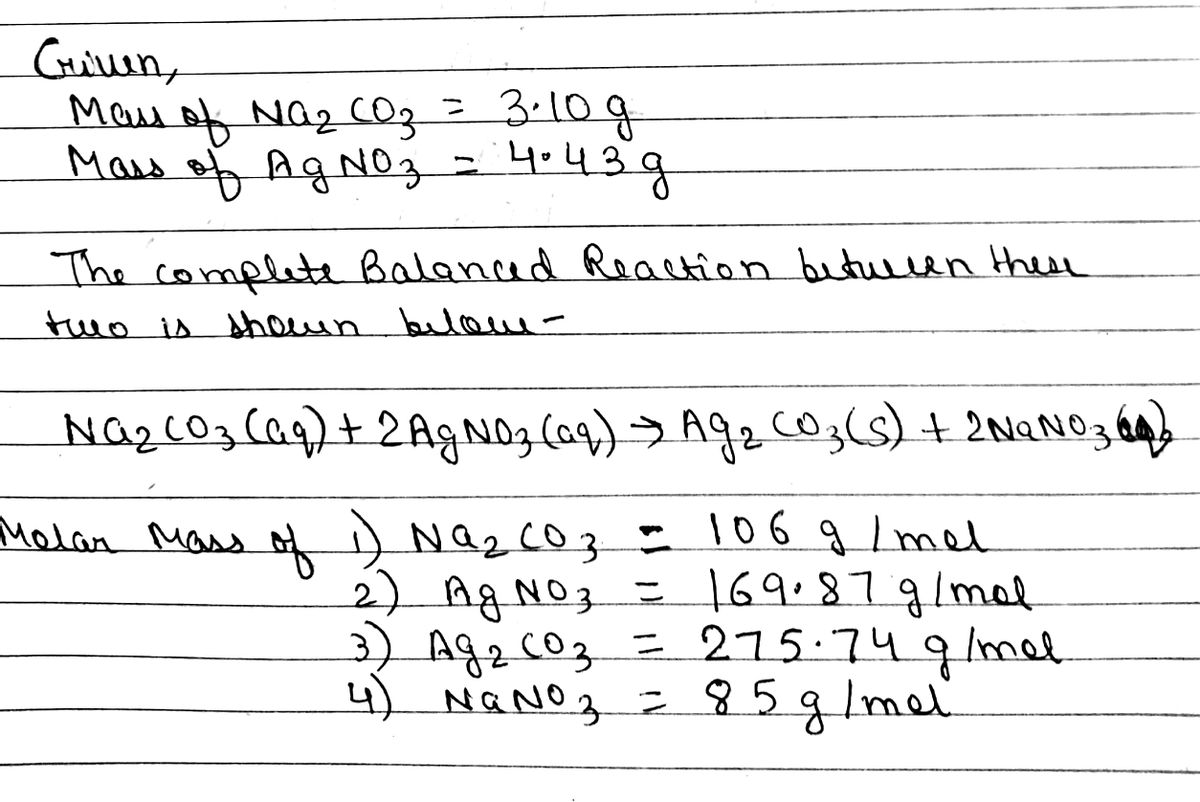 Given,
Mass of Na2CO3 = 3.10 g
Mass of AgNO3 = 4.43 g
The complete Balanced Reaction between these
two is shown below-
Na2CO3 (aq) + 2AgNO3 (aq) → Ag2CO3(s) + 2NaNO3 (aq)
Molar Mass of 1) Na2CO3 = 106 g/mol
2) AgNO3 = 169.87 g/mol
3) Ag2CO3 = 275.74 g/mol
4) NaNO3 = 85 g/mol